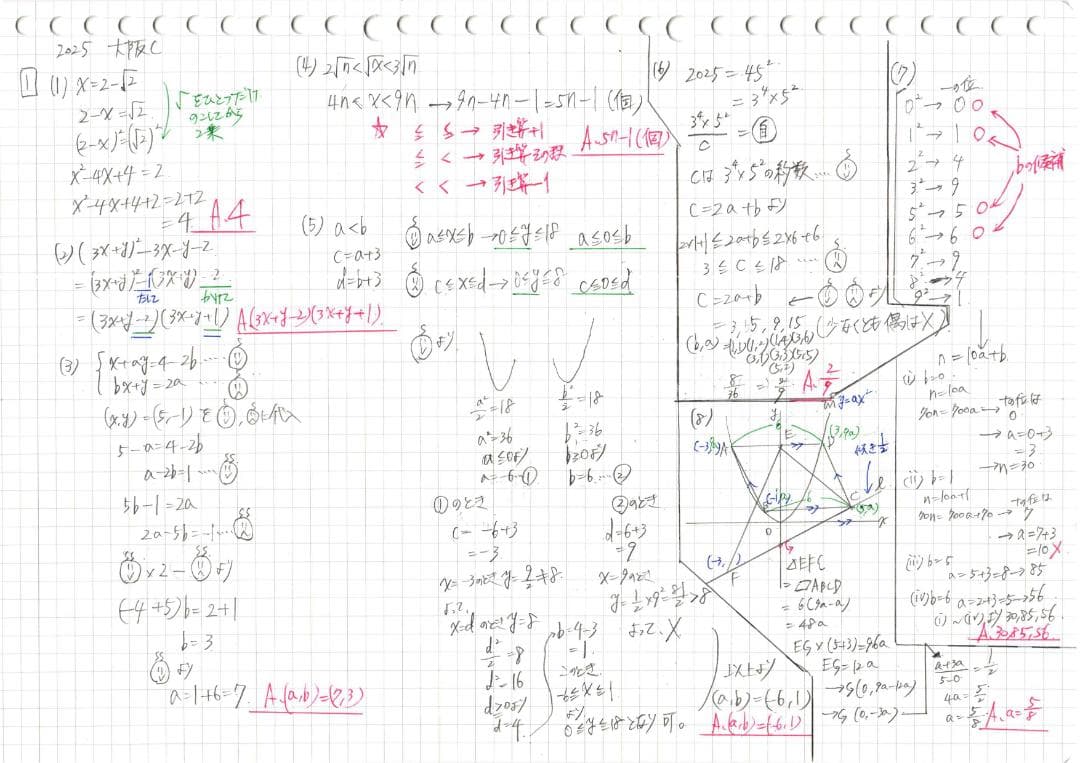 2025 大阪C
1
(1) x=2-√2
2-x=√2
(2-x)²=(√2)²
√をひとつだけ
のこしてから
2乗
x²-4x+4=2
x²-4x+4+2=2+2
=4 A.4
(2) (3x+y)²-3x-y-2
=(3x+y)²-1(3x+y)-2
たして
かけて
=(3x+y-2)(3x+y+1) A(3x+y-2)(3x+y+1)
(3) { x+ay=4-2b……
bx+y=2a……
(x,y)=(5,-1)を に代入
5-a=4-2b
a-2b=1……
5b-1=2a
2a-5b=-1……
×2- より
(-4+5)b=2+1
b=3
より
a=1+6=7 A.(a,b)=(7,3)
(4) 2√n<√x<3√n
4n<x<9n → 9n-4n-1=5n-1(個)
☆ ≦ ≦ → 引き算+1 A.5n-1(個)
≦ < → 引き算そのまま
< < → 引き算-1
(5) a<b
c=a+3
d=b+3
a≦x≦b → 0≦y≦18 a≦0≦b
c≦x≦d → 0≦y≦8 c≦0≦d
より
a²/2=18
a²=36
a≦0より
a=-6…①
b²/2=18
b²=36
b≧0より
b=6…②
①のとき
c=-6+3
=-3
x=-3のときy=9/2≠8
よって、
x=dのときy=8
d²/2=8
d²=16
d≧0より
d=4
b=4-3
=1
このとき
-6≦x≦1
より
0≦y≦18となり可。
②のとき
d=6+3
=9
x=9のとき
y=1/2×9²=81/2>8
よって、×
以上より
(a,b)=(-6,1)
A.(a,b)=(-6,1)
(6) 2025=45²
=3⁴×5²
3⁴×5²/c=自
cは3⁴×5²の約数……
c=2a+bより
2×1+1≦2a+b≦2×6+6
3≦c≦18……
c=2a+b ← より
=3,5,9,15(少なくとも偶は×)
(b,a)=(1,1)(1,2)(1,4)(3,6)
(3,1)(3,3)(5,5)
(5,2)
8/36=2/9 A.2/9
(7) 一の位
0² → 0 0
1² → 1 0
2² → 4
3² → 9
5² → 5 0
6² → 6 0
7² → 9
8² → 4
9² → 1
bの候補
n=10a+b
(i) b=0
n=10a
90n=900a → 十の位は
0
→ a=0+3
=3
→ n=30
(ii) b=1
n=10a+1
90n=900a+90 → 十の位は
9
→ a=7+3
=10×
(iii) b=5
a=5+3=8→85
(iv) b=6 a=2+3=5→56
(i)~(iv)より30,85,56
A.30,85,56
(8)
y
m y=ax²
(-3,9a) A
6
E
D (3,9a)
傾き1/2
(-1,a) B
6
C (5,a)
l
x
O
(-3, )
F
G
△EFC
=□ABCD
=6(9a-a)
=48a
EG×(5+3)=96a
EG=12a
→G(0,9a-12a)
→G(0,-3a)
a+3a/5-0=1/2
4a=5/2
a=5/8 A.a=5/8